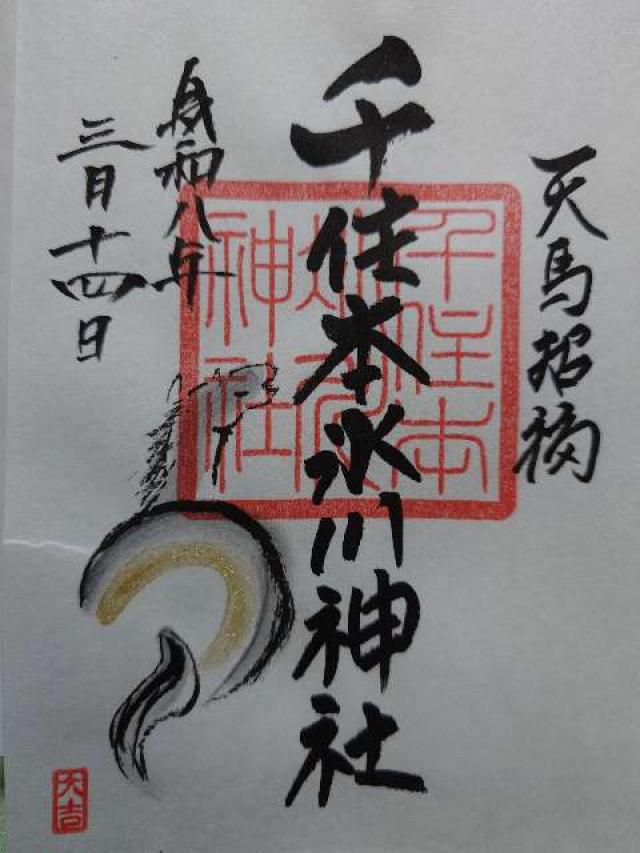 天馬招福
千住本氷川神社
千住本
氷川
神社
令和八年
三月十四日
大吉